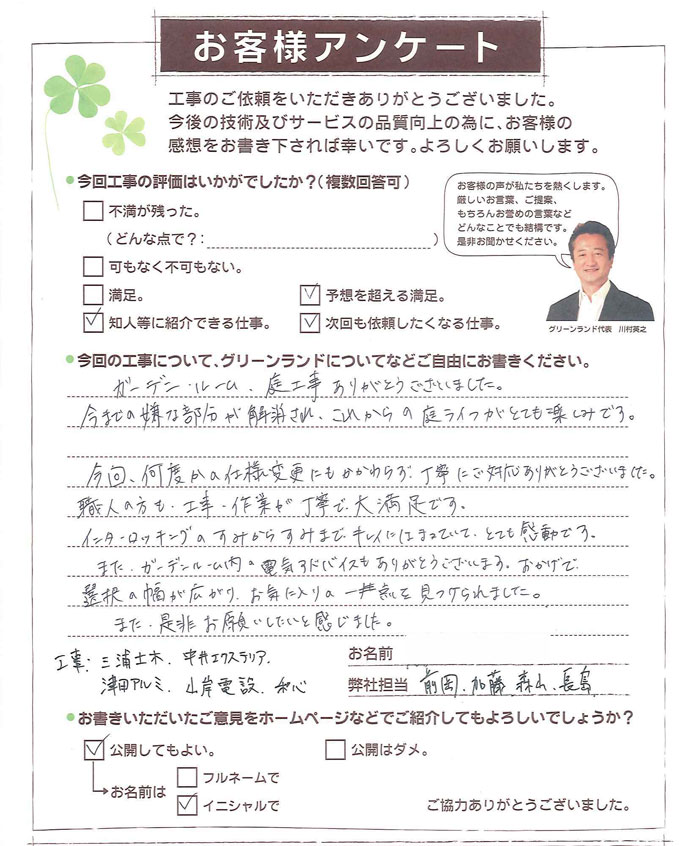 お客様アンケート
工事のご依頼をいただきありがとうございました。
今後の技術及びサービスの品質向上の為に、お客様の
感想をお書き下されば幸いです。よろしくお願いします。
今回工事の評価はいかがでしたか?(複数回答可)
不満が残った。
(どんな点で?: )
可もなく不可もない。
満足。
予想を超える満足。
知人等に紹介できる仕事。
次回も依頼したくなる仕事。
お客様の声が私たちを熱くします。
厳しいお言葉、ご提案、
もちろんお誉めの言葉など
どんなことでも結構です。
是非お聞かせください。
グリーンランド代表 川村英之
今回の工事について、グリーンランドについてなどご自由にお書きください。
ガーデンルーム、庭工事ありがとうございました。
今までの嫌な部分が解消され、これからの庭ライフがとても楽しみです。
今回、何度かの仕様変更にもかかわらず、丁寧にご対応ありがとうございました。
職人の方も、工事・作業が丁寧で、大満足です。
インターロッキングのすみからすみまで、キレイにはまっていて、とても感動です。
また、ガーデンルーム内の電気アドバイスもありがとうございます。おかげで、
選択の幅が広がり、お気に入りの一芦を見つけられました。
また、是非お願いしたいと感じました。
工事:三浦土木、中井エクステリア、
津田アルミ、山岸電設、和心
お名前
弊社担当 前岡、加藤、森山、長島
お書きいただいたご意見をホームページなどでご紹介してもよろしいでしょうか?
公開してもよい。
公開はダメ。
お名前は
フルネームで
イニシャルで
ご協力ありがとうございました。